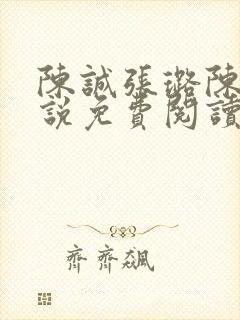 陳誠張璐陳
說免費閱讀
齊齊飆